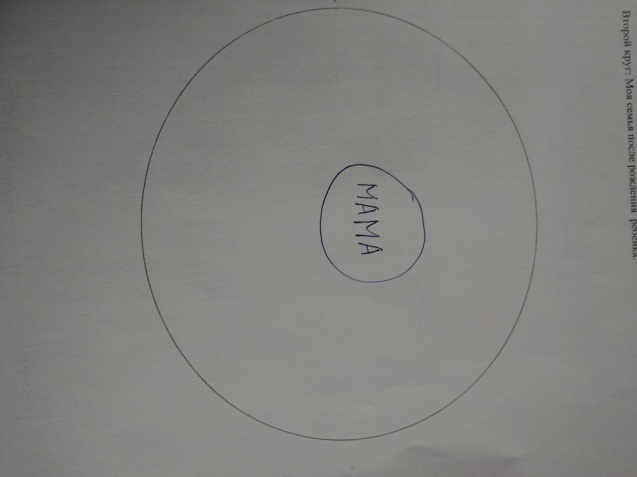 Второй круг: Моя семья после рождения ребенка.
МАМА